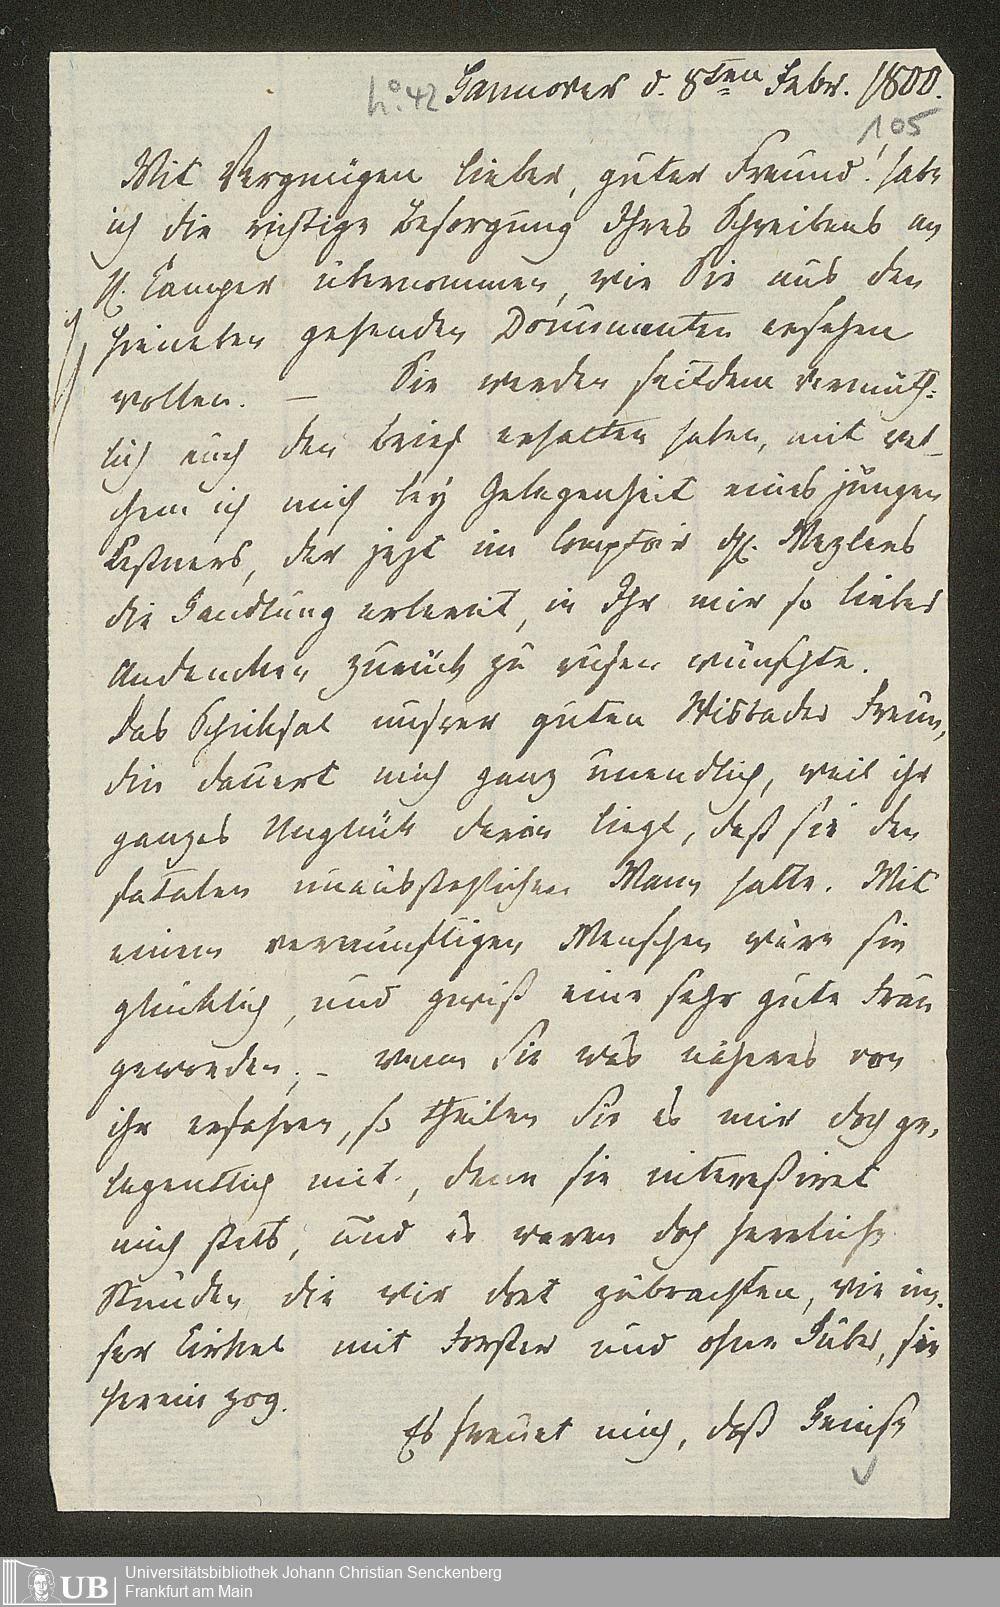 No. 42 Hannover d. 8ten Febr. 1800.
105
Mit Vergnügen lieber, guter Freund! habe
ich die richtige Besorgung Ihres Schreibens an
H. Camper übernommen, wie Sie aus den
hieneben gehenden Documenten ersehen
wollen. — Sie werden seitdem vermuth-
lich auch den Brief erhalten haben, mit wel-
chem ich mich bey Gelegenheit eines jungen
Kestners, der jezt im Comptoir H. Mezlers
die Handlung erlernt, in Ihr mir so liebes
Andencken zurück zu rufen wünschte.
Das Schicksal unsrer guten Wisbader Freun-
din dauert mich ganz unendlich, weil ihr
ganzes Unglück darin liegt, daß sie den
fatalen unausstehlichen Mann hatte. Mit
einem vernünftigen Menschen wäre sie
glücklich, und gewiß eine sehr gute Frau
geworden; – wenn Sie was näheres von
ihr erfahren, so theilen Sie es mir doch ge-
legentlich mit, denn sie interessiret
mich stets, und es waren doch herrliche
Stunden die wir dort zubrachten, wie un-
ser Cirkel mit Forster und ohne Huber, sie
herein zog.
Es freuet mich, daß Heinse
Universitätsbibliothek Johann Christian Senckenberg
Frankfurt am Main
UB